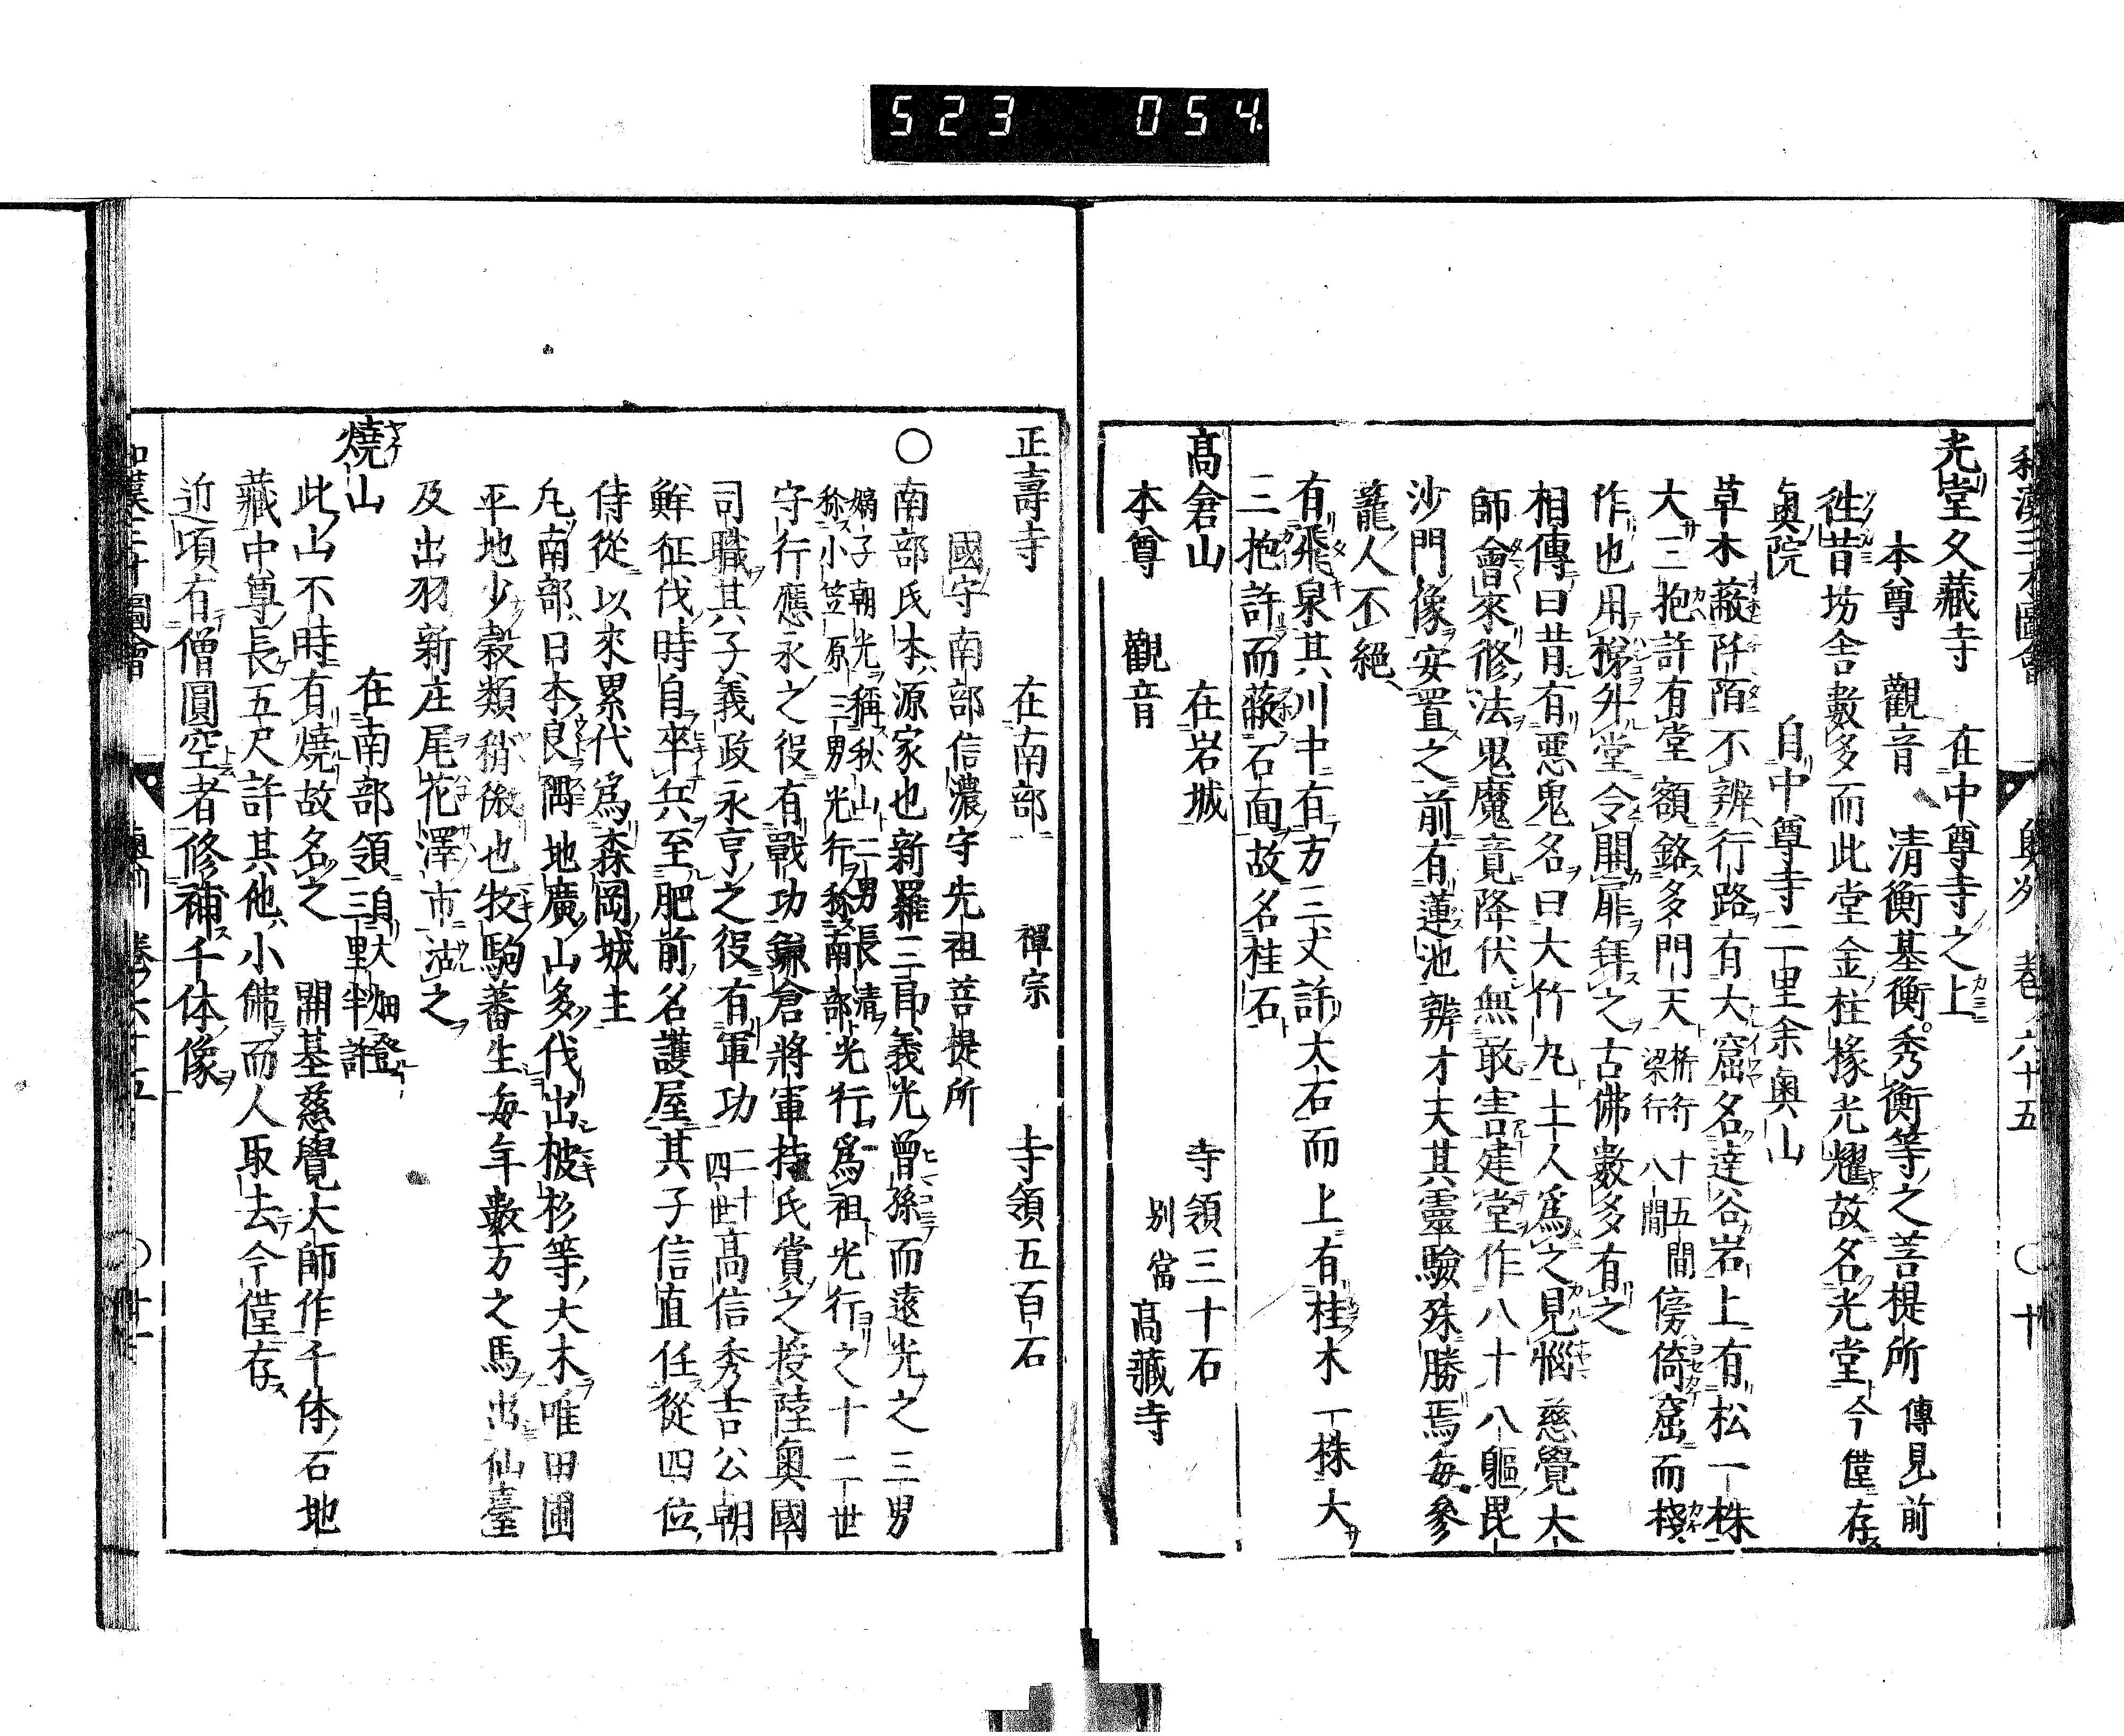 523 054.
和漢三才圖會 奥州 卷ノ六十五 〇十
光堂又藏寺 在中尊寺之上
本尊 觀音 清衡基衡秀衡等之菩提所 傳見前
徃昔坊舎數多而此堂金柱椽光耀故名光堂 今僅存
奥院 自中尊寺二里余奥山
草木蔽阡陌不辨行路有大窟名達谷岩上有松一株
大三抱許有堂額銘多門天 桁行十五間 梁行八間 傍倚窟而棧
作也用梯升堂令開扉拜之古佛數多有之
相傳曰昔有惡鬼名曰大竹丸土人爲之見惱慈覺大
師會來修法鬼魔竟降伏無敢害建堂作八十八軀毘
沙門像安置之前有蓮池辨才天其靈驗殊勝焉毎參
籠人不絕
有飛泉其川中有方三丈許大石而上有桂木一株大
三抱許而蔽石面故名桂石
髙倉山 在岩城 寺領三十石
本尊 觀音 別當 髙藏寺
正壽寺 在南部 禪宗 寺領五百石
國守南部信濃守先祖菩提所
〇南部氏本源家也新羅三郎義光曾孫而遠光之三男
嫡子朝光稱秋山二男長清
称小笠原三男光行称南部 光行爲祖光行之十二世
守行應永之役有戰功鎌倉將軍持氏賞之授陸奥國
司職其子義政永亨之役有軍功 二十四世髙信秀吉公朝
鮮征伐時自卒兵至肥前名護屋其子信直任從四位
侍從以來累代爲森岡城主
凡南部日本良隅地廣山多代出柀杉等大木唯田圃
平地少穀類稍微也牧駒蕃生毎年數万之馬出仙臺
及出羽新庄尾花澤市沽之
燒山 在南部領 自大畑登三里半許
此山不時有燒故名之 開基慈覺大師作千体石地
藏中尊長五尺許其他小佛而人取去今僅存
近頃有僧圓空者修補千体像
和漢三才圖會 奥州 卷ノ六十五 〇十一